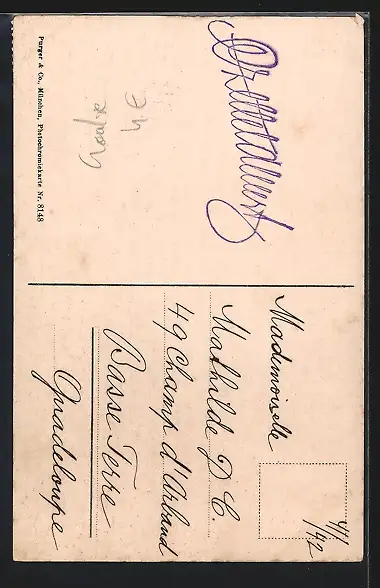 Purger & Co., München, Photochromiekarte Nr. 8148
Mademoiselle
Mathilde D C.
49 Champ d'Arland
Basse Terre
Guadeloupe